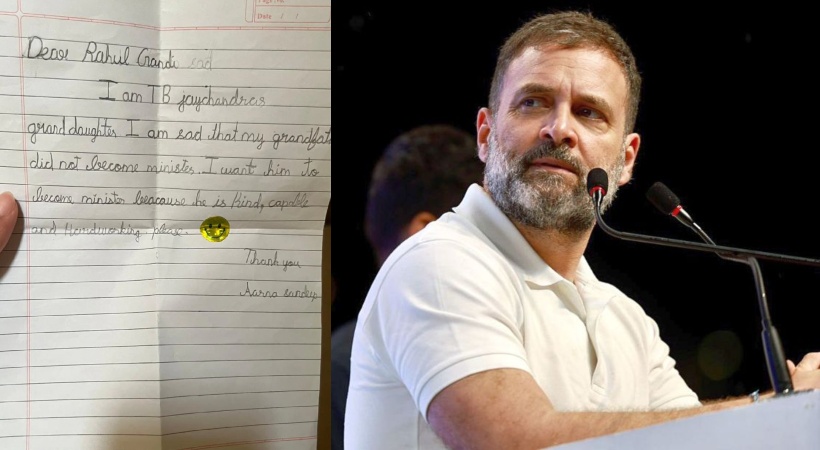 Page No.
Date / /
Dear Rahul Gandi sad
I am TB jaychandras
granddaughter I am sad that my grandfath
did not become minister. I want him to
become minister beacause he is kind, capable
and Hardworking please.
Thank you
Aarna sandeep